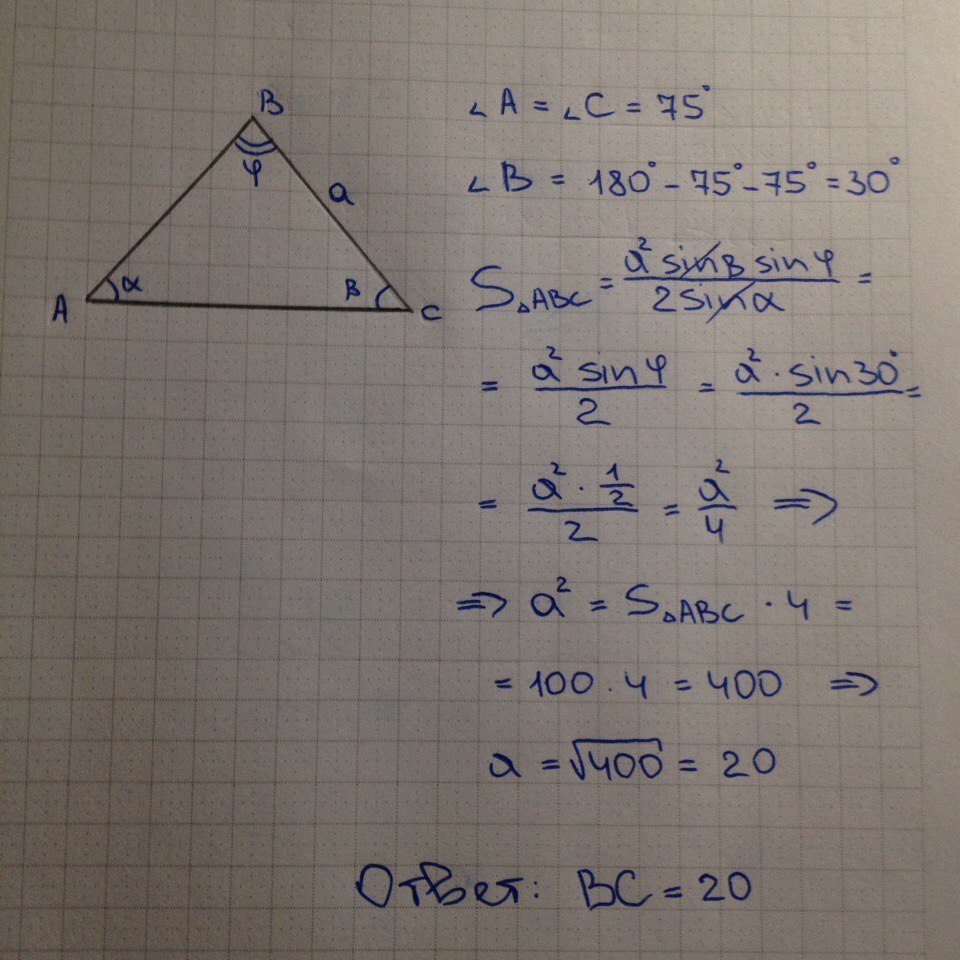 B
φ
a
A
α
β
C
∠A = ∠C = 75°
∠B = 180° - 75° - 75° = 30°
S△ABC = a² sinβ sinφ / 2 sinα =
= a² sinφ / 2 = a² · sin30° / 2 =
= a² · 1/2 / 2 = a² / 4 =>
=> a² = S△ABC · 4 =
= 100 · 4 = 400 =>
a = √400 = 20
Ответ: BC = 20